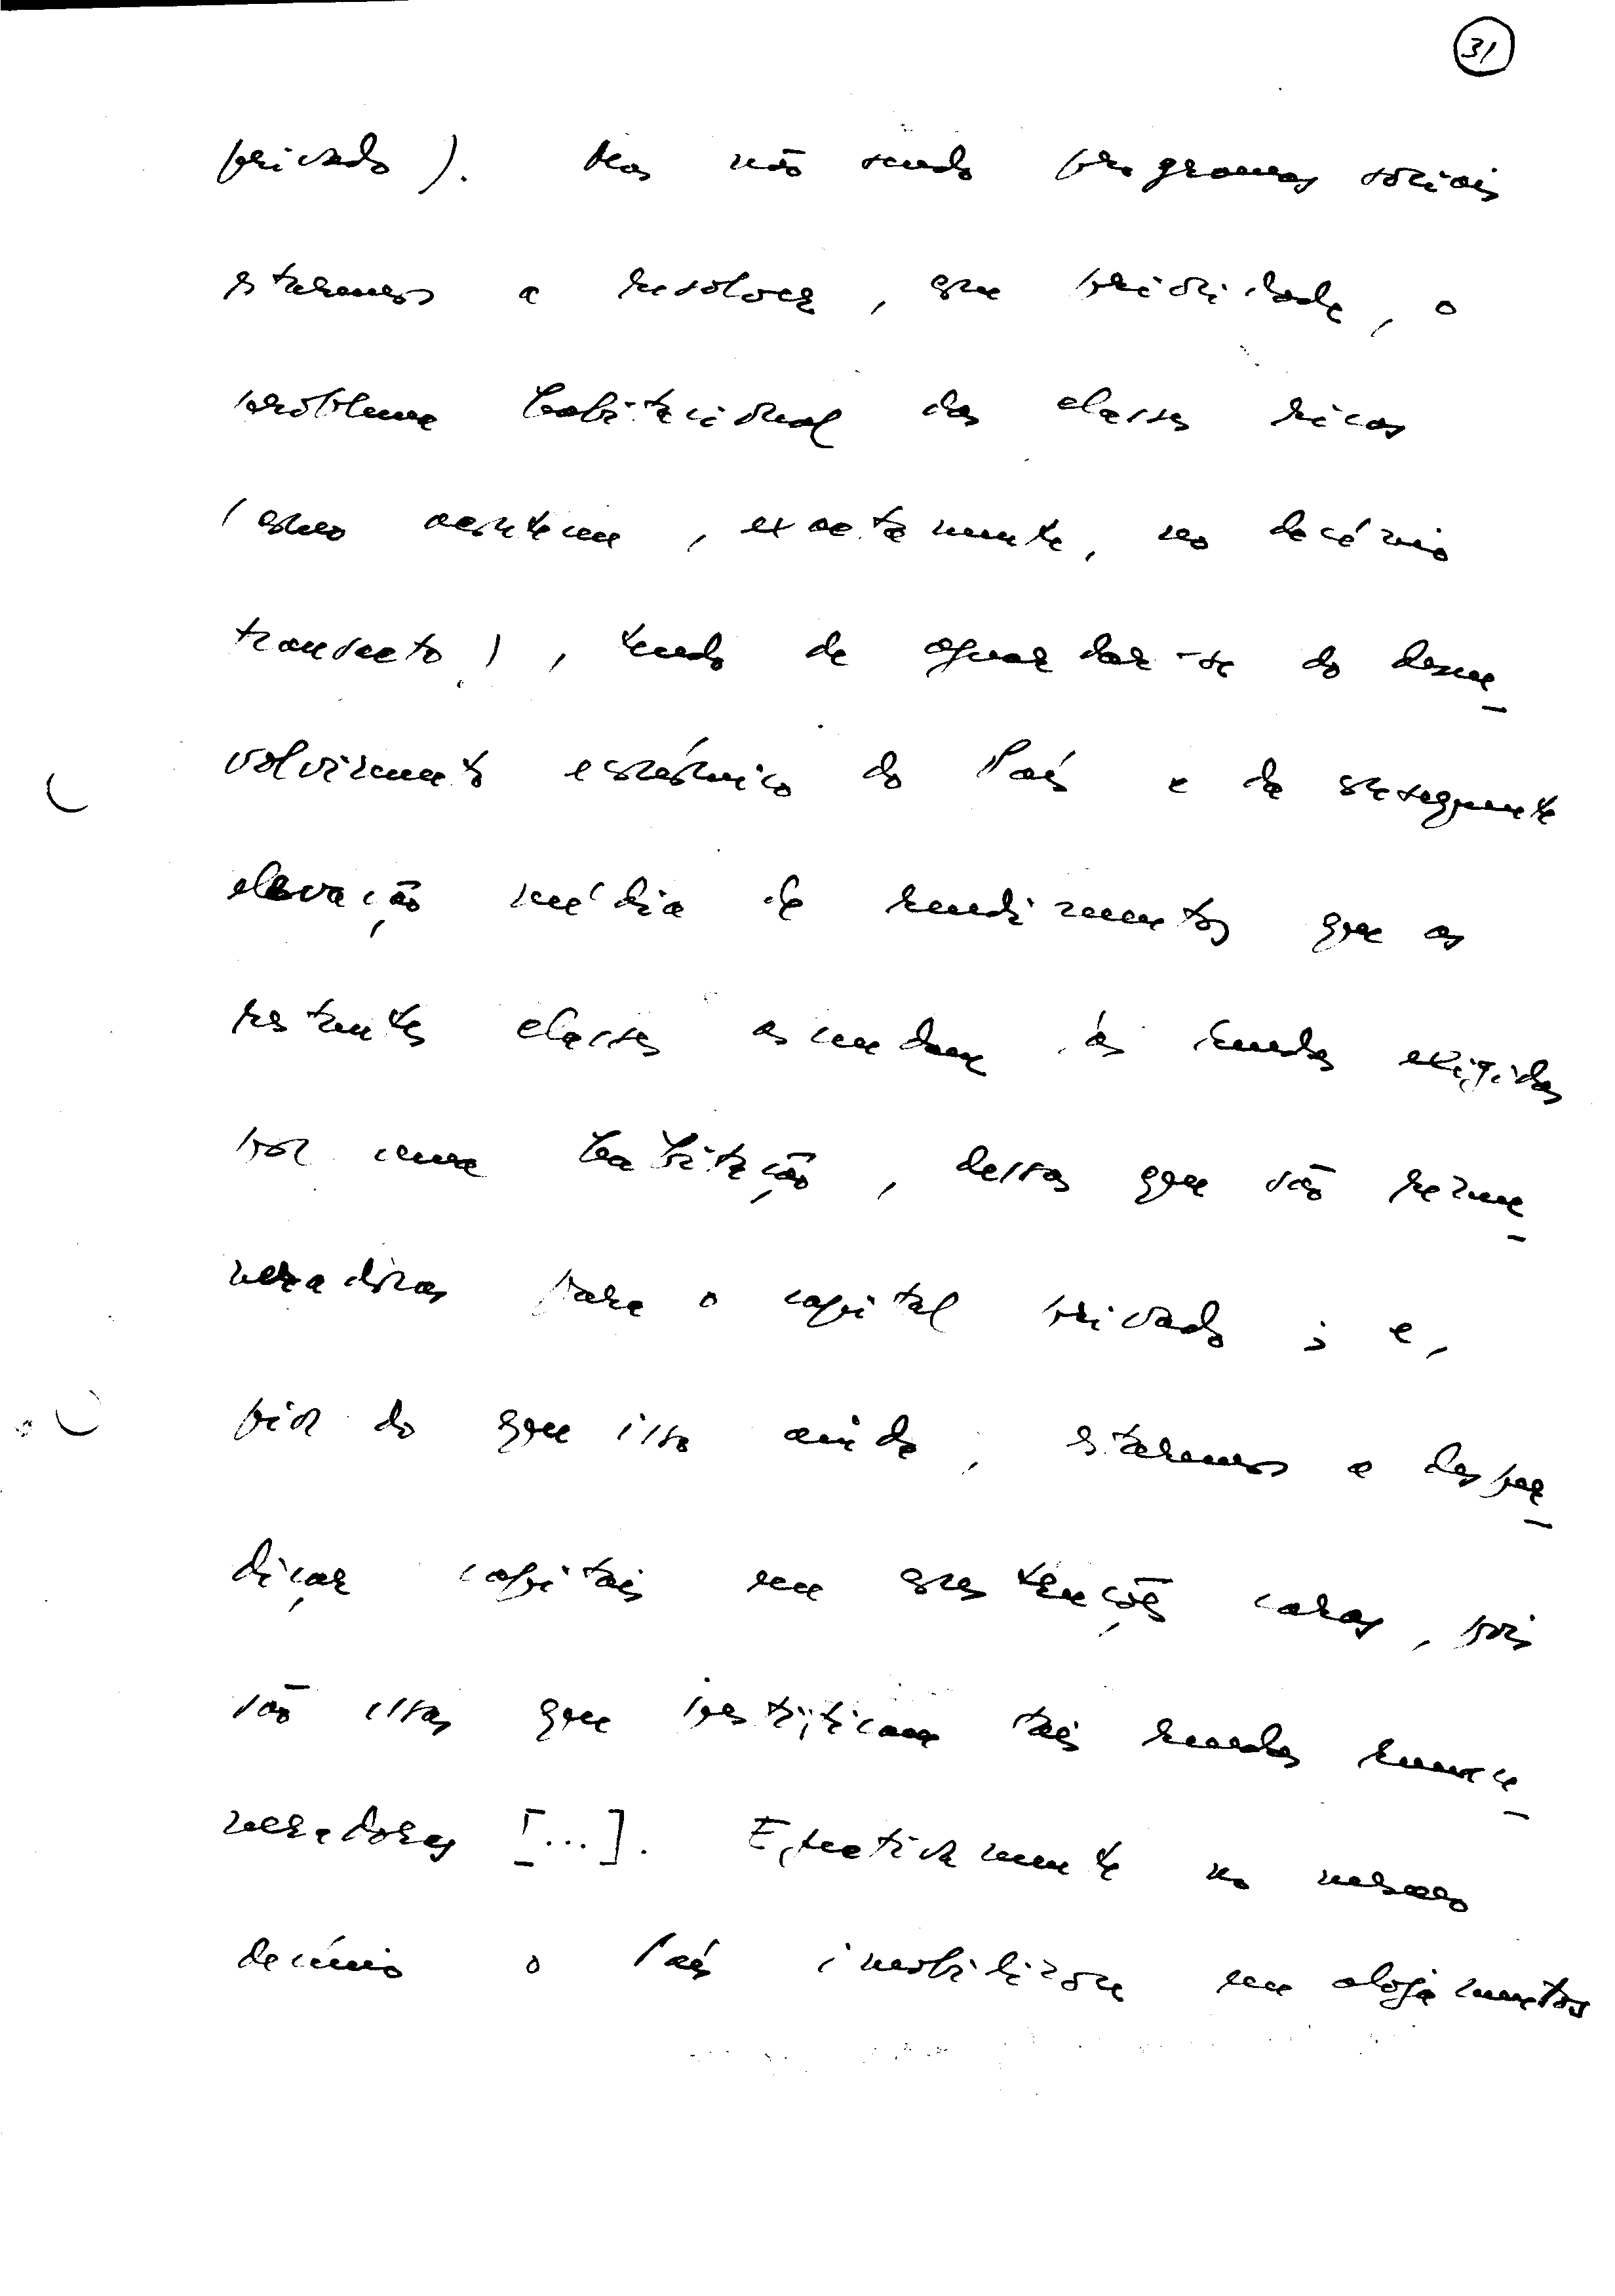 31
privado). Mas não sendo programas sociais
estaremos a resolver, com prioridade, o
problema habitacional das classes ricas
(como acontece, exactamente, no decénio
transacto), tendo de aguardar-se do desen-
volvimento económico do País e da consequente
elevação média de rendimentos que as
restantes classes ascendam às rendas exigidas
por uma habitação, dessas que são remu-
neradoras para o capital privado; e,
pior do que isso ainda, estaremos a desper-
diçar capitais em construções caras, pois
são essas que justificam tais rendas remu-
neradoras [...]. Efectivamente no mesmo
decénio o País imobilizou em alojamentos